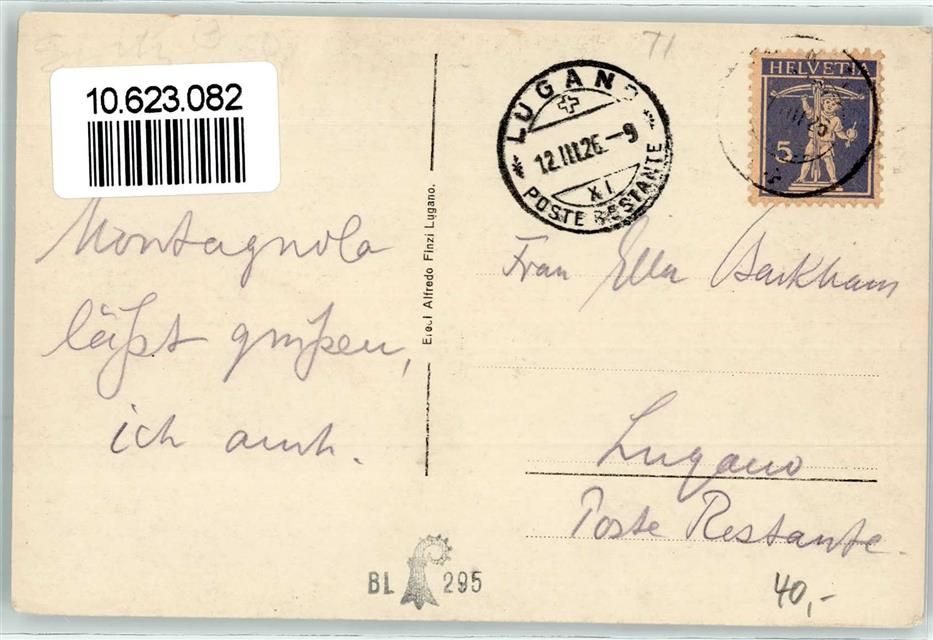 10.623.082
Montagnola
läßt grüßen,
ich auch.
Eredi Alfredo Finzi Lugano.
71
LUGANO
12.III.26.-9
XI
POSTE RESTANTE
HELVETIA
5
Frau Ella
Lugano
Poste Restante.
BL 295
40,-